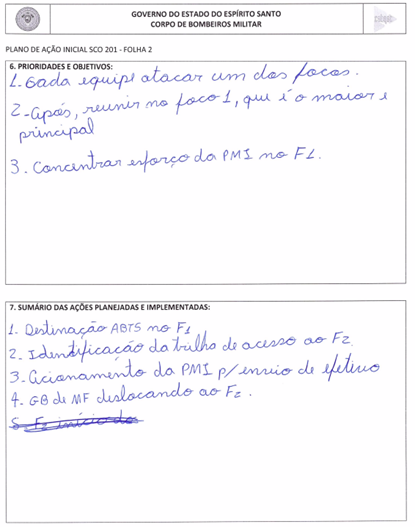 GOVERNO DO ESTADO DO ESPÍRITO SANTO
CORPO DE BOMBEIROS MILITAR
PLANO DE AÇÃO INICIAL SCO 201 - FOLHA 2
6. PRIORIDADES E OBJETIVOS:
1. Cada equipe atacar um dos focos.
2 - Após, reunir no foco 1, que é o maior e
principal
3. Concentrar esforço da PMI no F1.
7. SUMÁRIO DAS AÇÕES PLANEJADAS E IMPLEMENTADAS:
1. Destinação ABTS no F1
2. Identificação da trilha de acesso ao F2.
3. Acionamento da PMI p/ envio de efetivo
4. GB de MF deslocando ao F2.
5 F2 início do